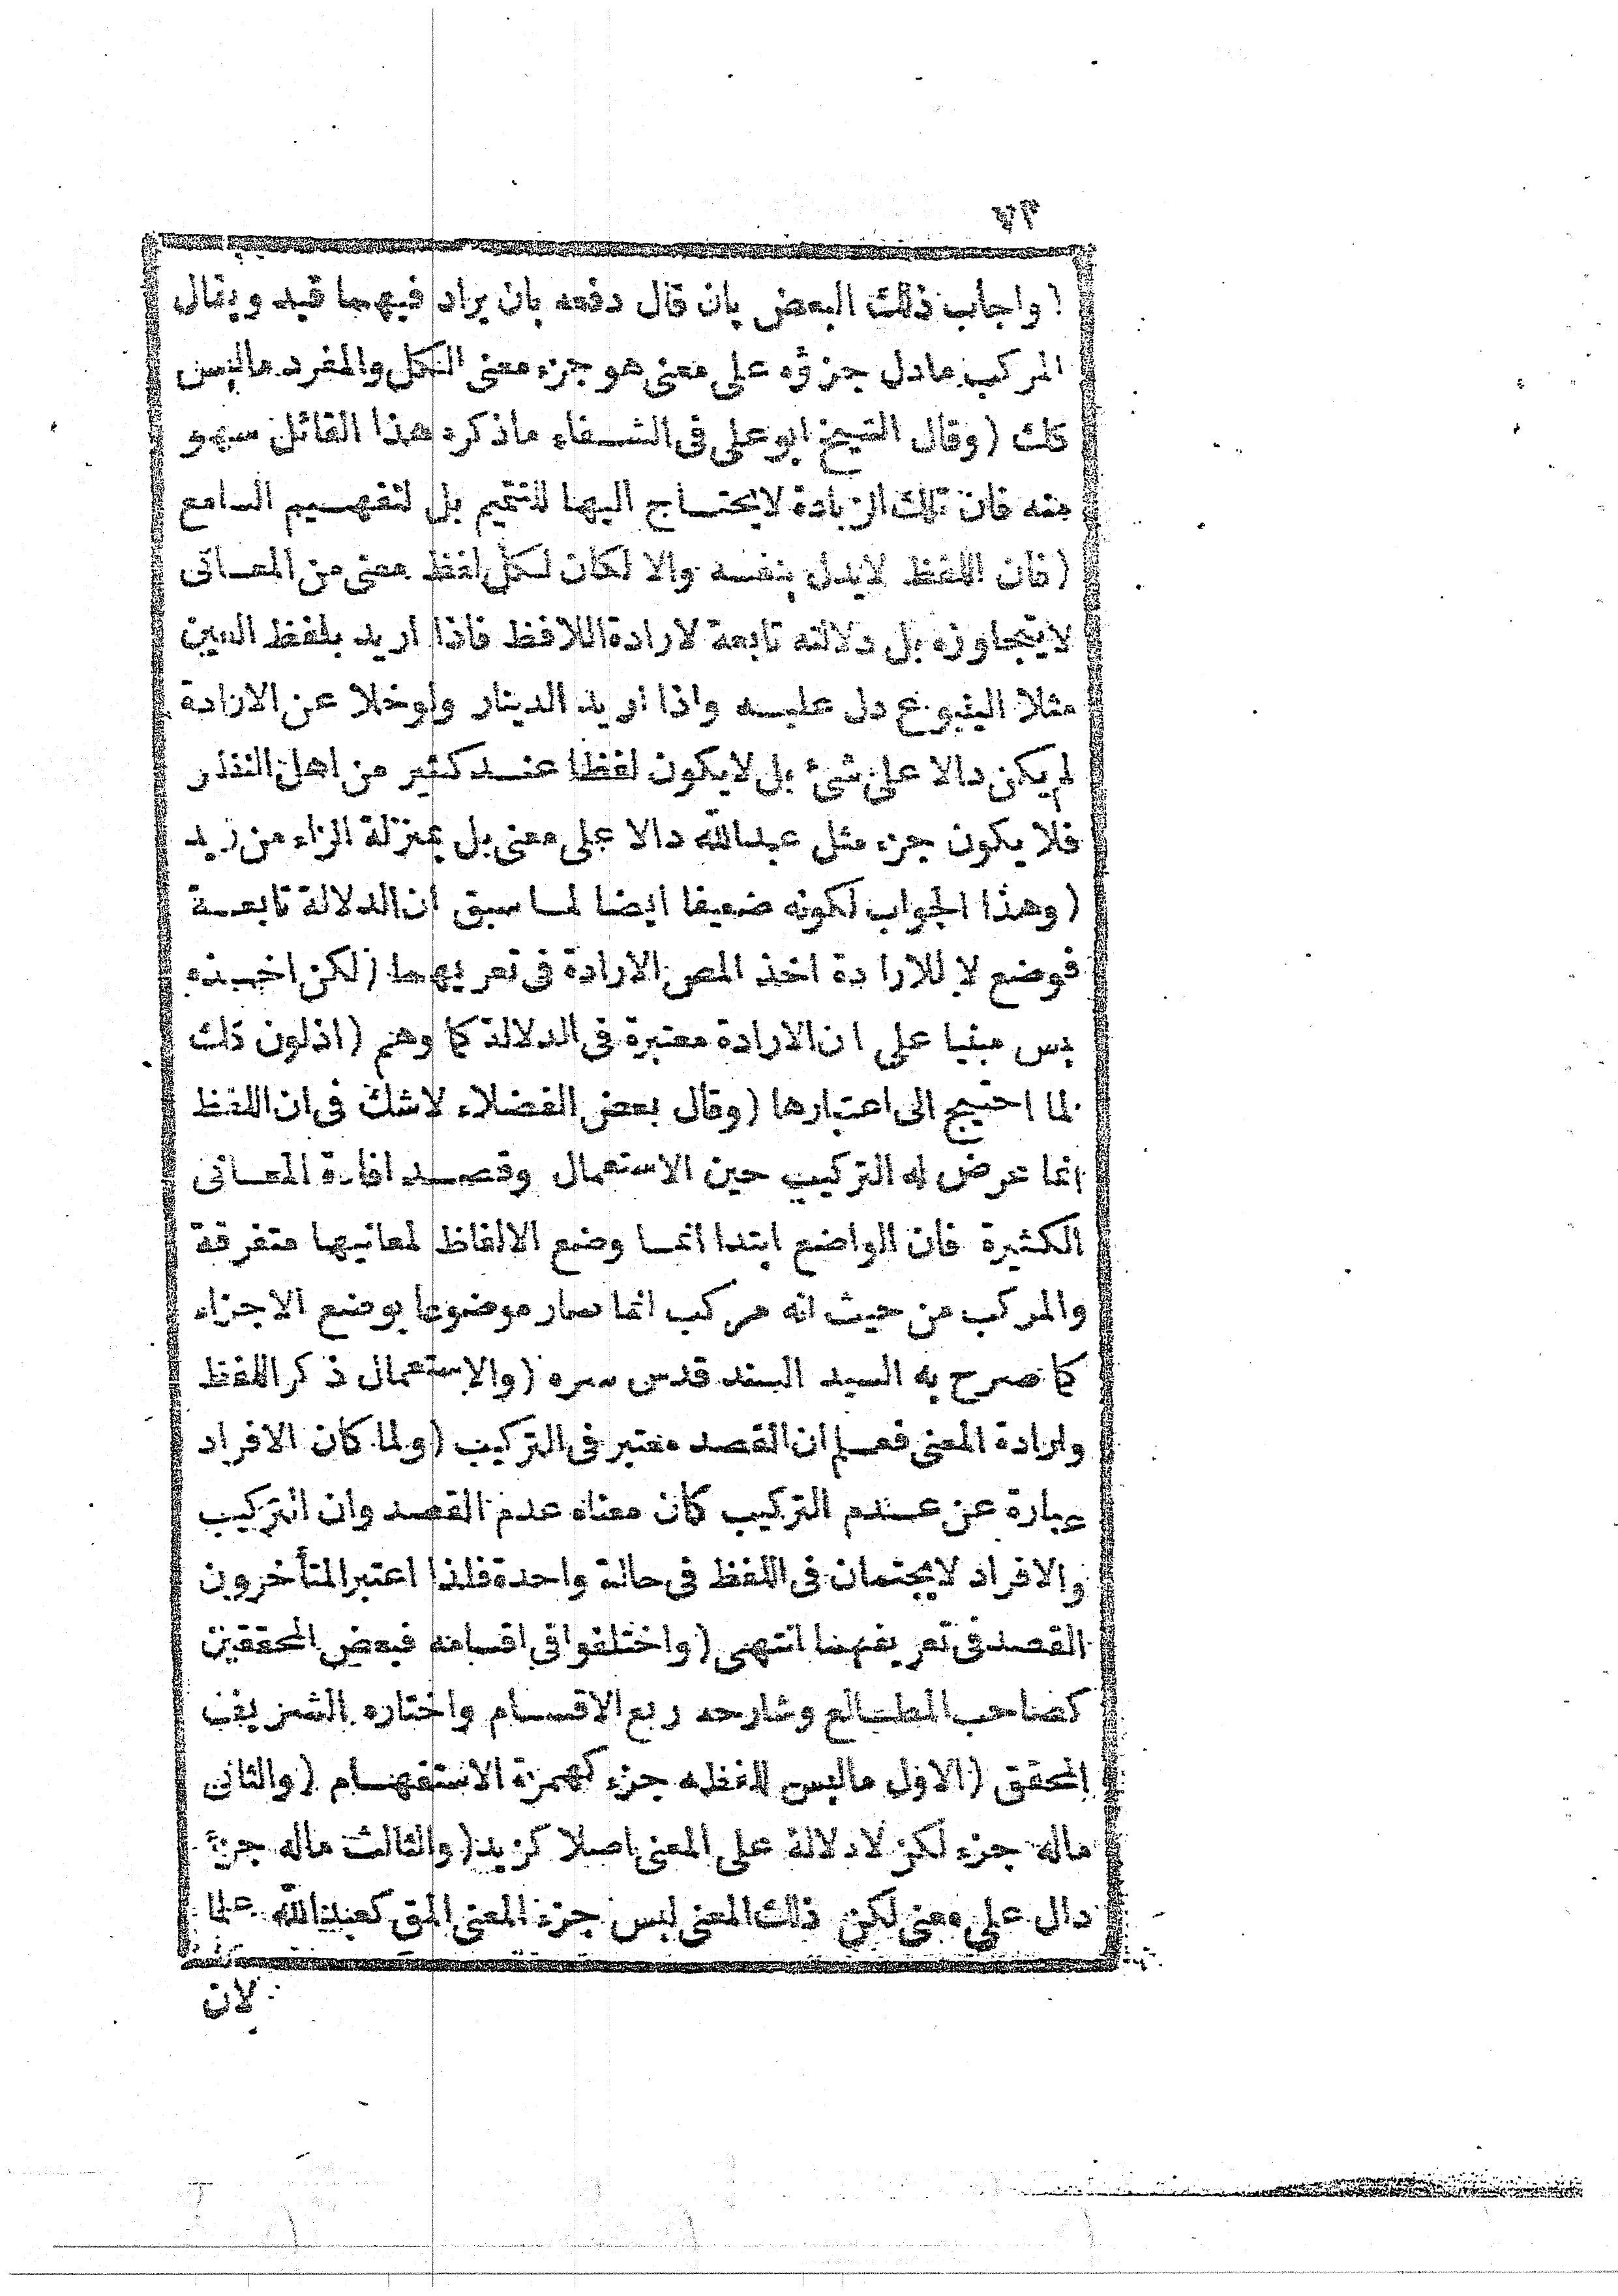 ٧٢
(واجاب ذلك البعض بان قال دفعه بان يراد فيهما قيد ويقال
المركب مادل جزؤه على معنى هو جزء معنى الكل والمفرد ماليس
كك (وقال الشيخ ابو على فى الشفاء ماذكره هذا القائل سهو
منه فان تلك الزيادة لايحتاج اليها للتتميم بل لتفهيم السامع
(فان اللفظ لايدل بنفسه والا لكان لكل لفظ معنى من المعانى
لايتجاوزه بل دلالته تابعة لارادة اللافظ فاذا اريد بلفظ العين
مثلا الينبوع دل عليه واذا اريد الدينار ولوخلا عن الارادة
لم يكن دالا على شئ بل لايكون لفظا عند كثير من اهل النظر
فلا يكون جزء مثل عبدالله دالا على معنى بل بمنزلة الزاء من زيد
(وهذا الجواب لكونه ضعيفا ايضا لما سبق ان الدلالة تابعة
فوضع لا للارادة اخذ المص الارادة فى تعريفهما (لكن اخذه
يس مبنيا على ان الارادة معتبرة فى الدلالة كما وهم (اذلون ذلك
لما احتيج الى اعتبارها (وقال بعض الفضلاء لاشك فى ان اللفظ
انما عرض له التركيب حين الاستعمال وقصد افادة المعانى
الكثيرة فان الواضع ابتدا انما وضع الالفاظ لمعانيها متفرقة
والمركب من حيث انه مركب انما صار موضوعا بوضع الاجزاء
كما صرح به السيد السند قدس سره (والاستعمال ذكر اللفظ
وارادة المعنى فعلم ان القصد معتبر فى التركيب (ولما كان الافراد
عبارة عن عدم التركيب كان معناه عدم القصد وان التركيب
والافراد لايجتمعان فى اللفظ فى حالة واحدة فلذا اعتبر المتأخرون
القصد فى تعريفهما انتهى (واختلفوا فى اقسامه فبعض المحققين
كصاحب المطالع وشارحه ربع الاقسام واختاره الشريف
المحقق (الاول ماليس للفظه جزء كهمزة الاستفهام (والثانى
ماله جزء لكن لادلالة على المعنى اصلا كزيد (والثالث ماله جزء
دال على معنى لكن ذلك المعنى ليس جزء المعنى المق كعبدالله علما
لان